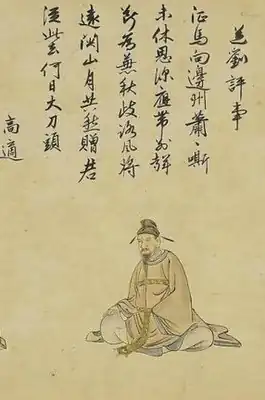 送劉評事
征馬向邊州蕭々嘶
未休思深應帶別聲
斷為兼秋歧路風將
遠關山月共愁贈君
從此去何日大刀頭
高適